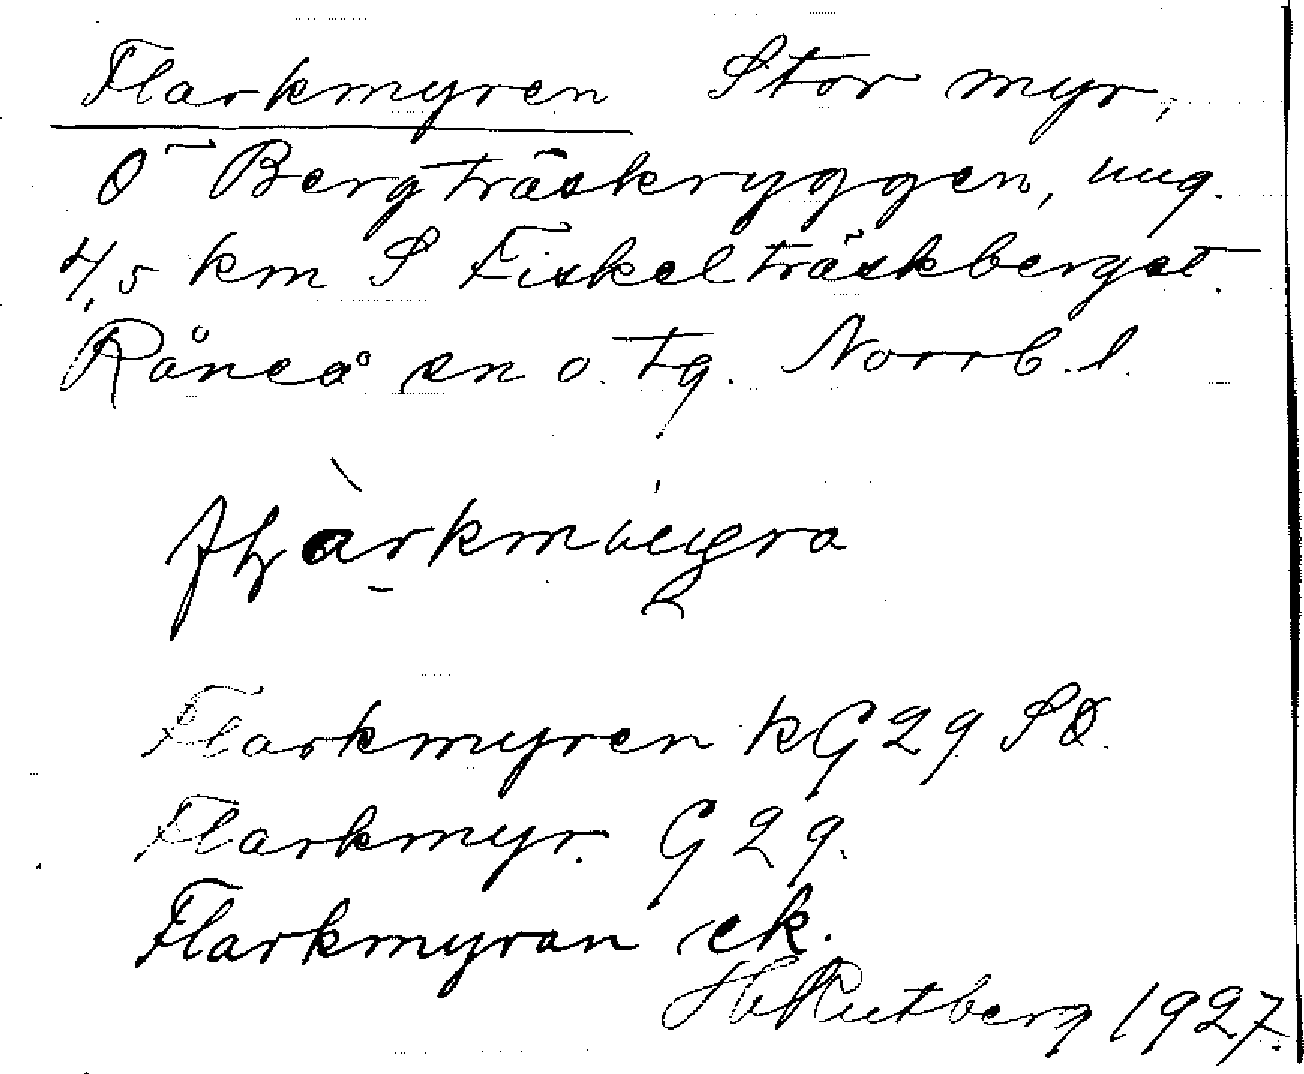 Flarkmyren Stor myr,
Ö Bergträskryggen, ung.
4,5 km S Fiskelträskberget.
Råneå sn o. tg. Norrb. l.
Flarkmyren kG29 SÖ.
Flarkmyr. G29.
Flarkmyran ek.
H Rutberg 1927.